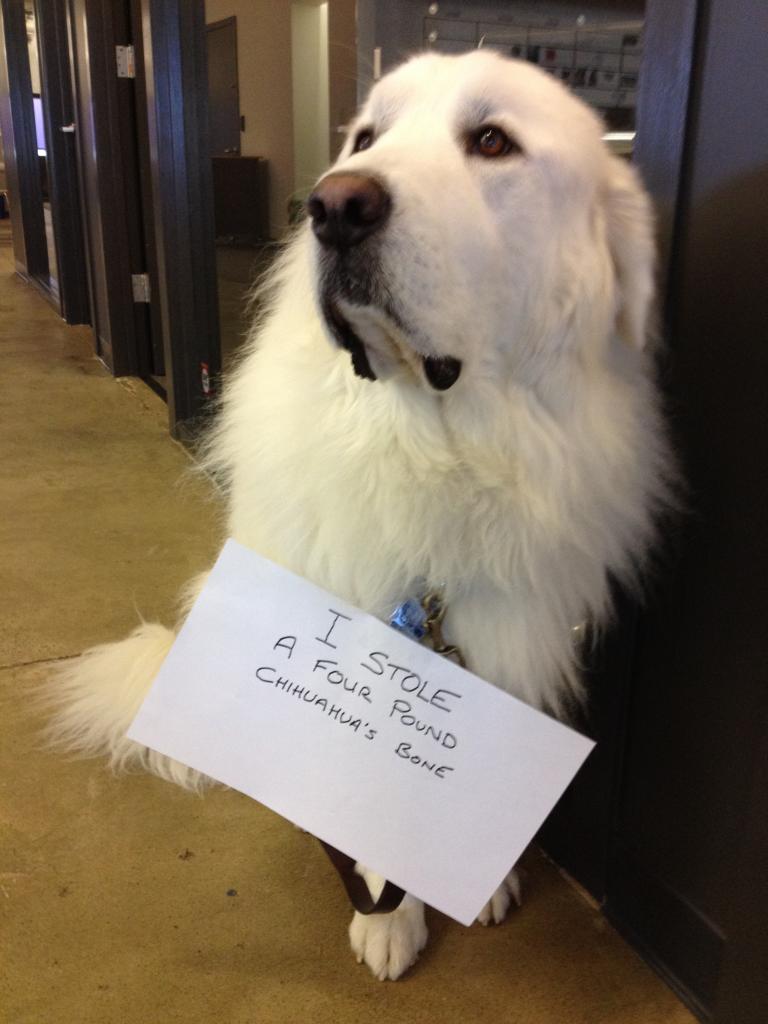 I STOLE
A FOUR POUND
CHIHUAHUA'S BONE